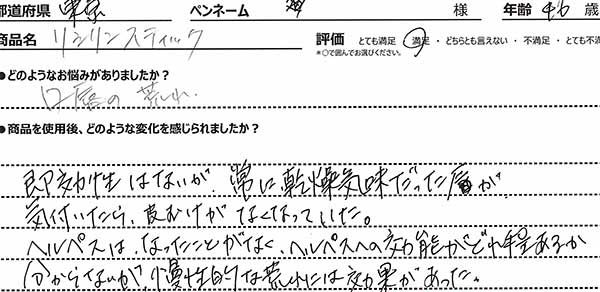 都道府県 東京 ペンネーム 様 年齢 46 歳
商品名 リシリンスティック 評価 とても満足 ・ 満足 ・ どちらとも言えない ・ 不満足 ・ とても不満
*〇で囲んでお選びください。
●どのようなお悩みがありましたか？
口唇の荒れ。
●商品を使用後、どのような変化を感じられましたか？
即効性はないが、常に乾燥気味だった唇が、
気付いたら、皮むけがなくなっていた。
ヘルペスは、なったことがなく、ヘルペスへの効能がどれ程あるか
分からないが、慢性的な荒れには効果があった。